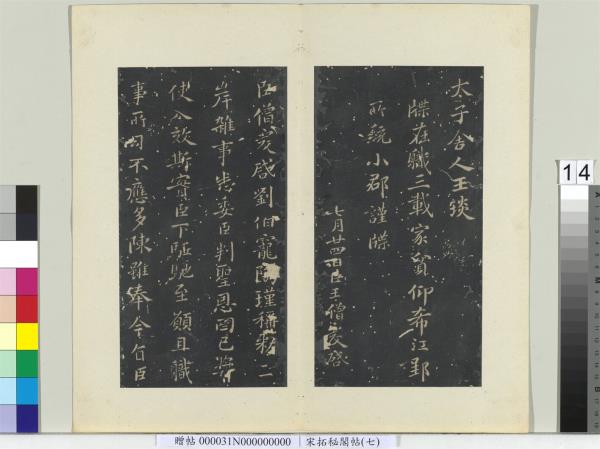 太子舍人王琰
牒在職三載家貧仰希江郢
所統小郡謹牒
七月廿四日臣王僧虔啓
臣僧虔啓劉伯寵
岸雜事悉委臣判聖恩罔已獎
使入效斯實臣下驅馳至願且職
事所司不應多陳雖奉令旨臣
14
贈帖 000031N000000000
宋拓秘閣帖(七)